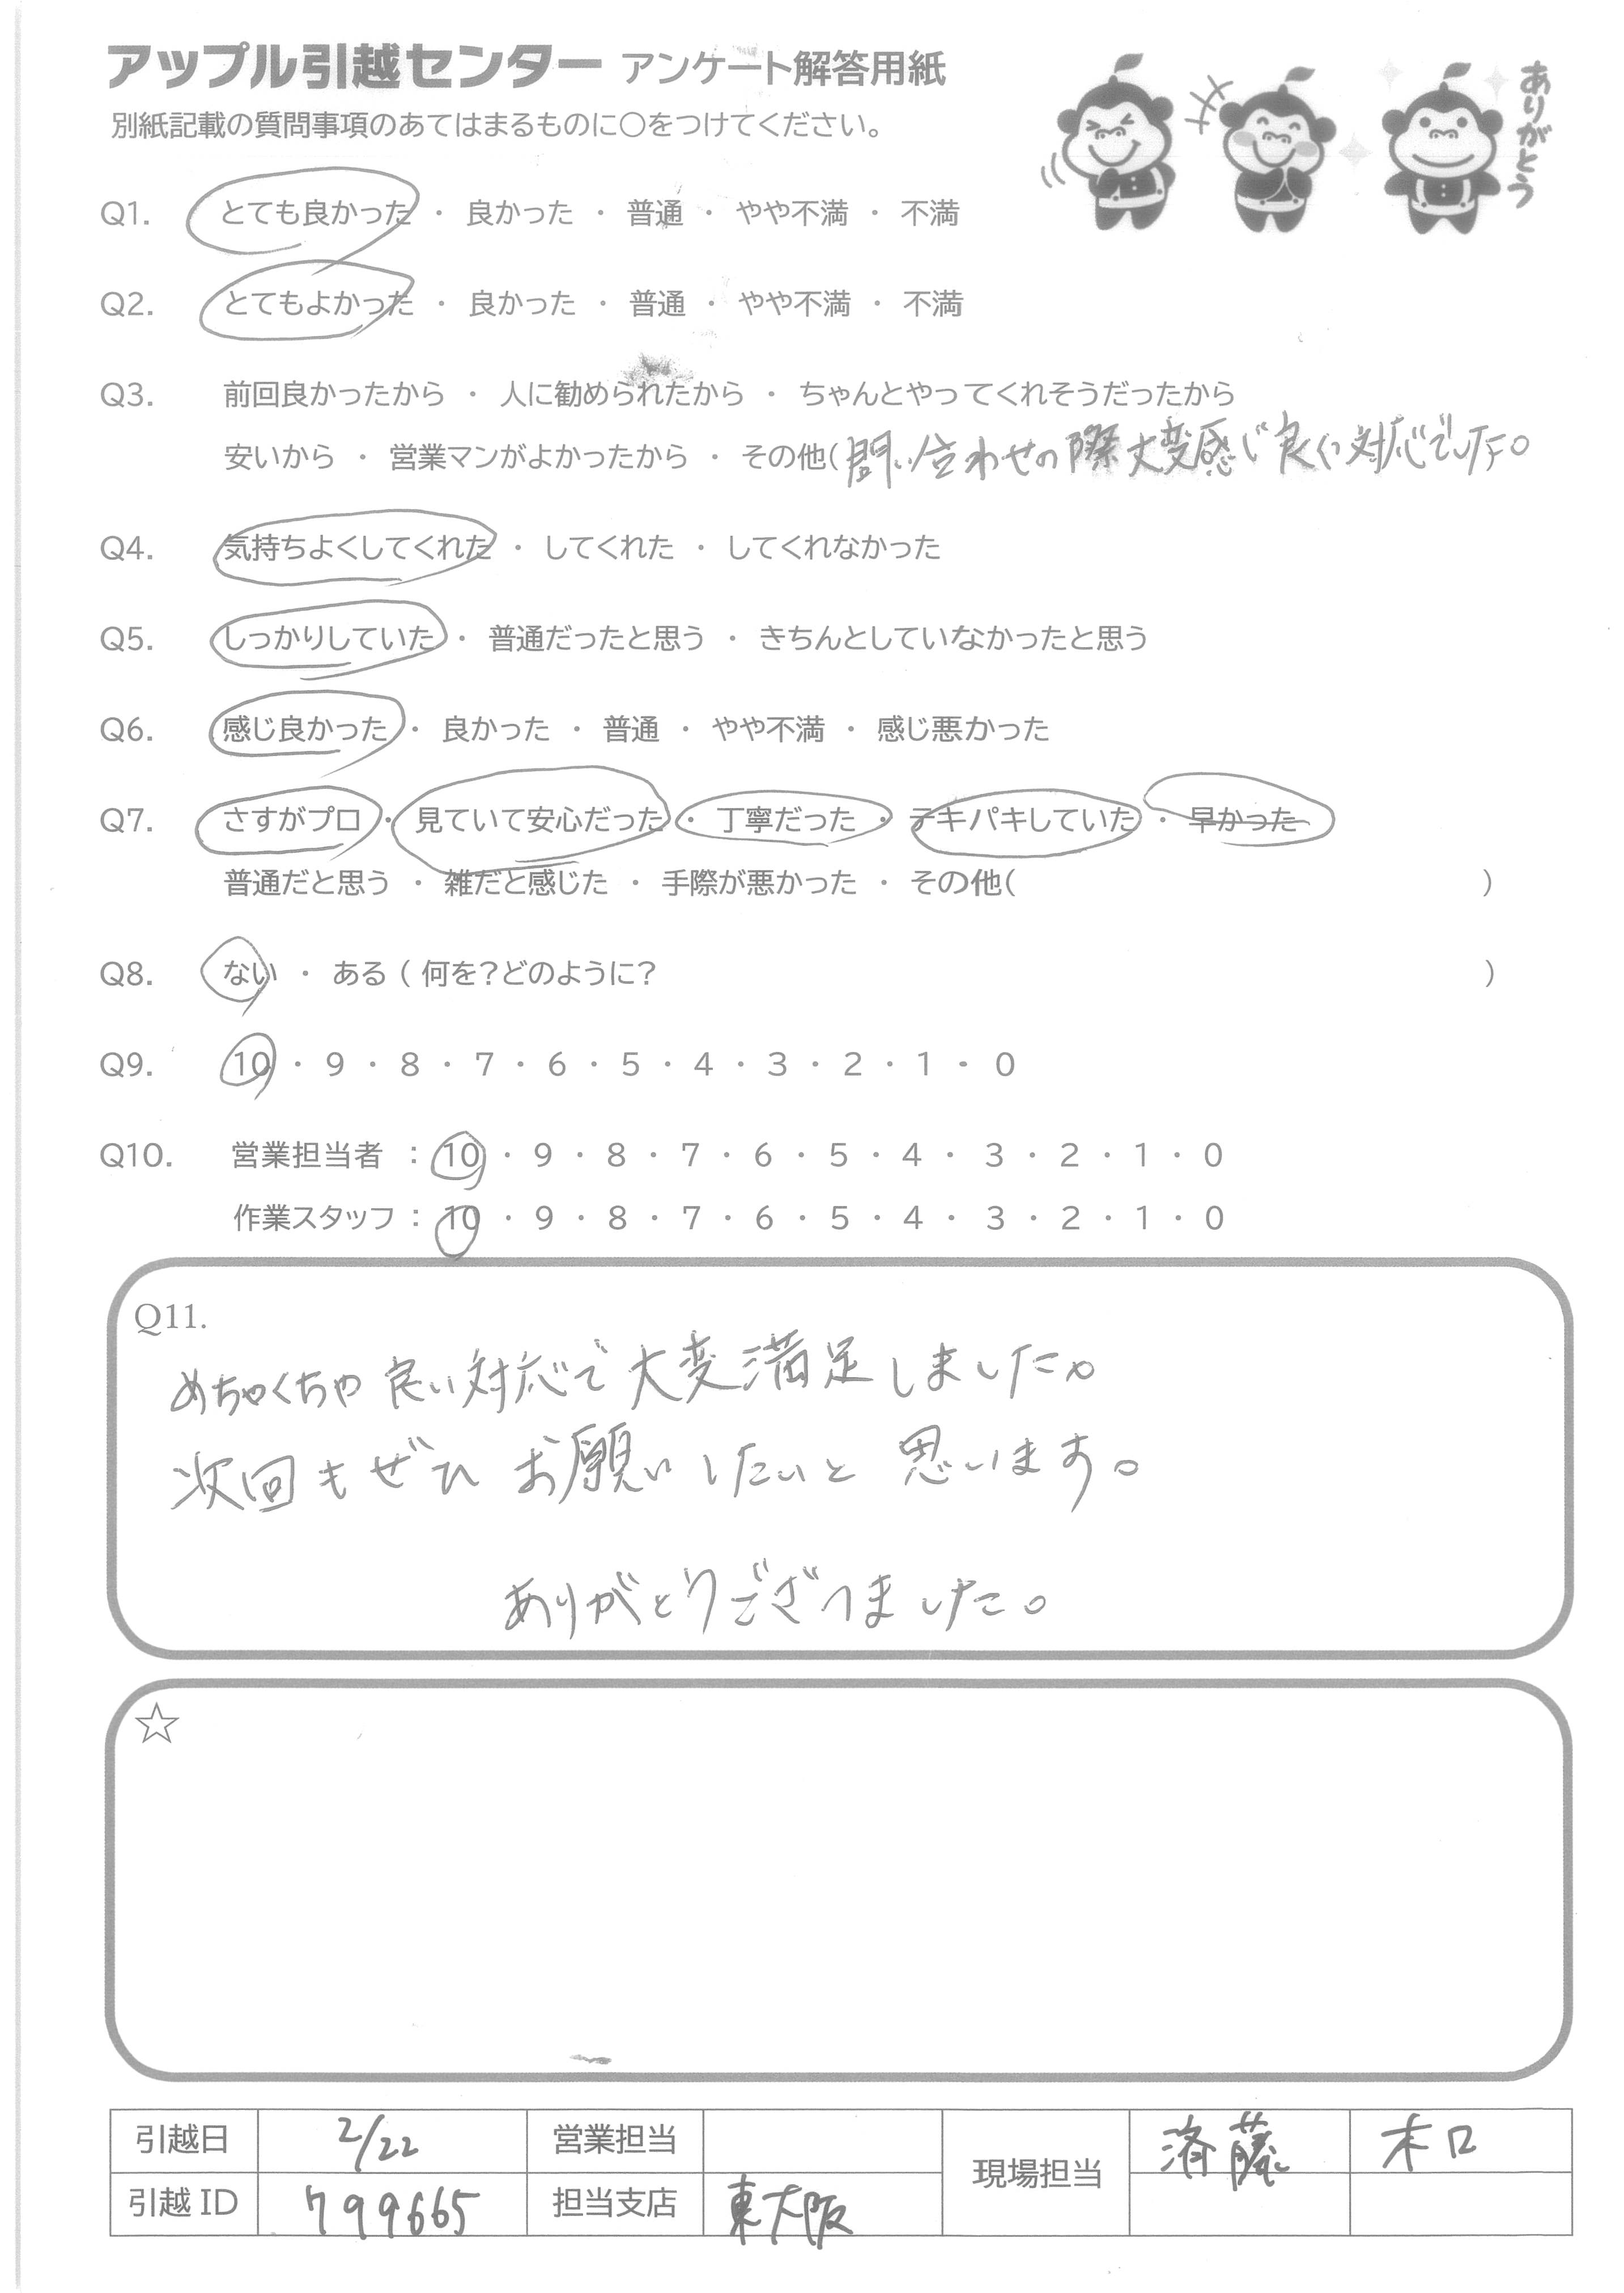 アップル引越センター アンケート解答用紙
別紙記載の質問事項のあてはまるものに○をつけてください。
ありがとう
Q1. とても良かった ・ 良かった ・ 普通 ・ やや不満 ・ 不満
Q2. とてもよかった ・ 良かった ・ 普通 ・ やや不満 ・ 不満
Q3. 前回良かったから ・ 人に勧められたから ・ ちゃんとやってくれそうだったから
安いから ・ 営業マンがよかったから ・ その他( 問い合わせの際大変感じ良く対応でした。
Q4. 気持ちよくしてくれた ・ してくれた ・ してくれなかった
Q5. しっかりしていた ・ 普通だったと思う ・ きちんとしていなかったと思う
Q6. 感じ良かった ・ 良かった ・ 普通 ・ やや不満 ・ 感じ悪かった
Q7. さすがプロ ・ 見ていて安心だった ・ 丁寧だった ・ テキパキしていた ・ 早かった
普通だと思う ・ 雑だと感じた ・ 手際が悪かった ・ その他( )
Q8. ない ・ ある ( 何を?どのように? )
Q9. 10 ・ 9 ・ 8 ・ 7 ・ 6 ・ 5 ・ 4 ・ 3 ・ 2 ・ 1 ・ 0
Q10. 営業担当者 : 10 ・ 9 ・ 8 ・ 7 ・ 6 ・ 5 ・ 4 ・ 3 ・ 2 ・ 1 ・ 0
作業スタッフ : 10 ・ 9 ・ 8 ・ 7 ・ 6 ・ 5 ・ 4 ・ 3 ・ 2 ・ 1 ・ 0
Q11.
めちゃくちゃ良い対応で大変満足しました。
次回もぜひお願いしたいと思います。
ありがとうございました。
☆
引越日 2/22 営業担当 現場担当 済藤 木口
引越 ID 799665 担当支店 東大阪